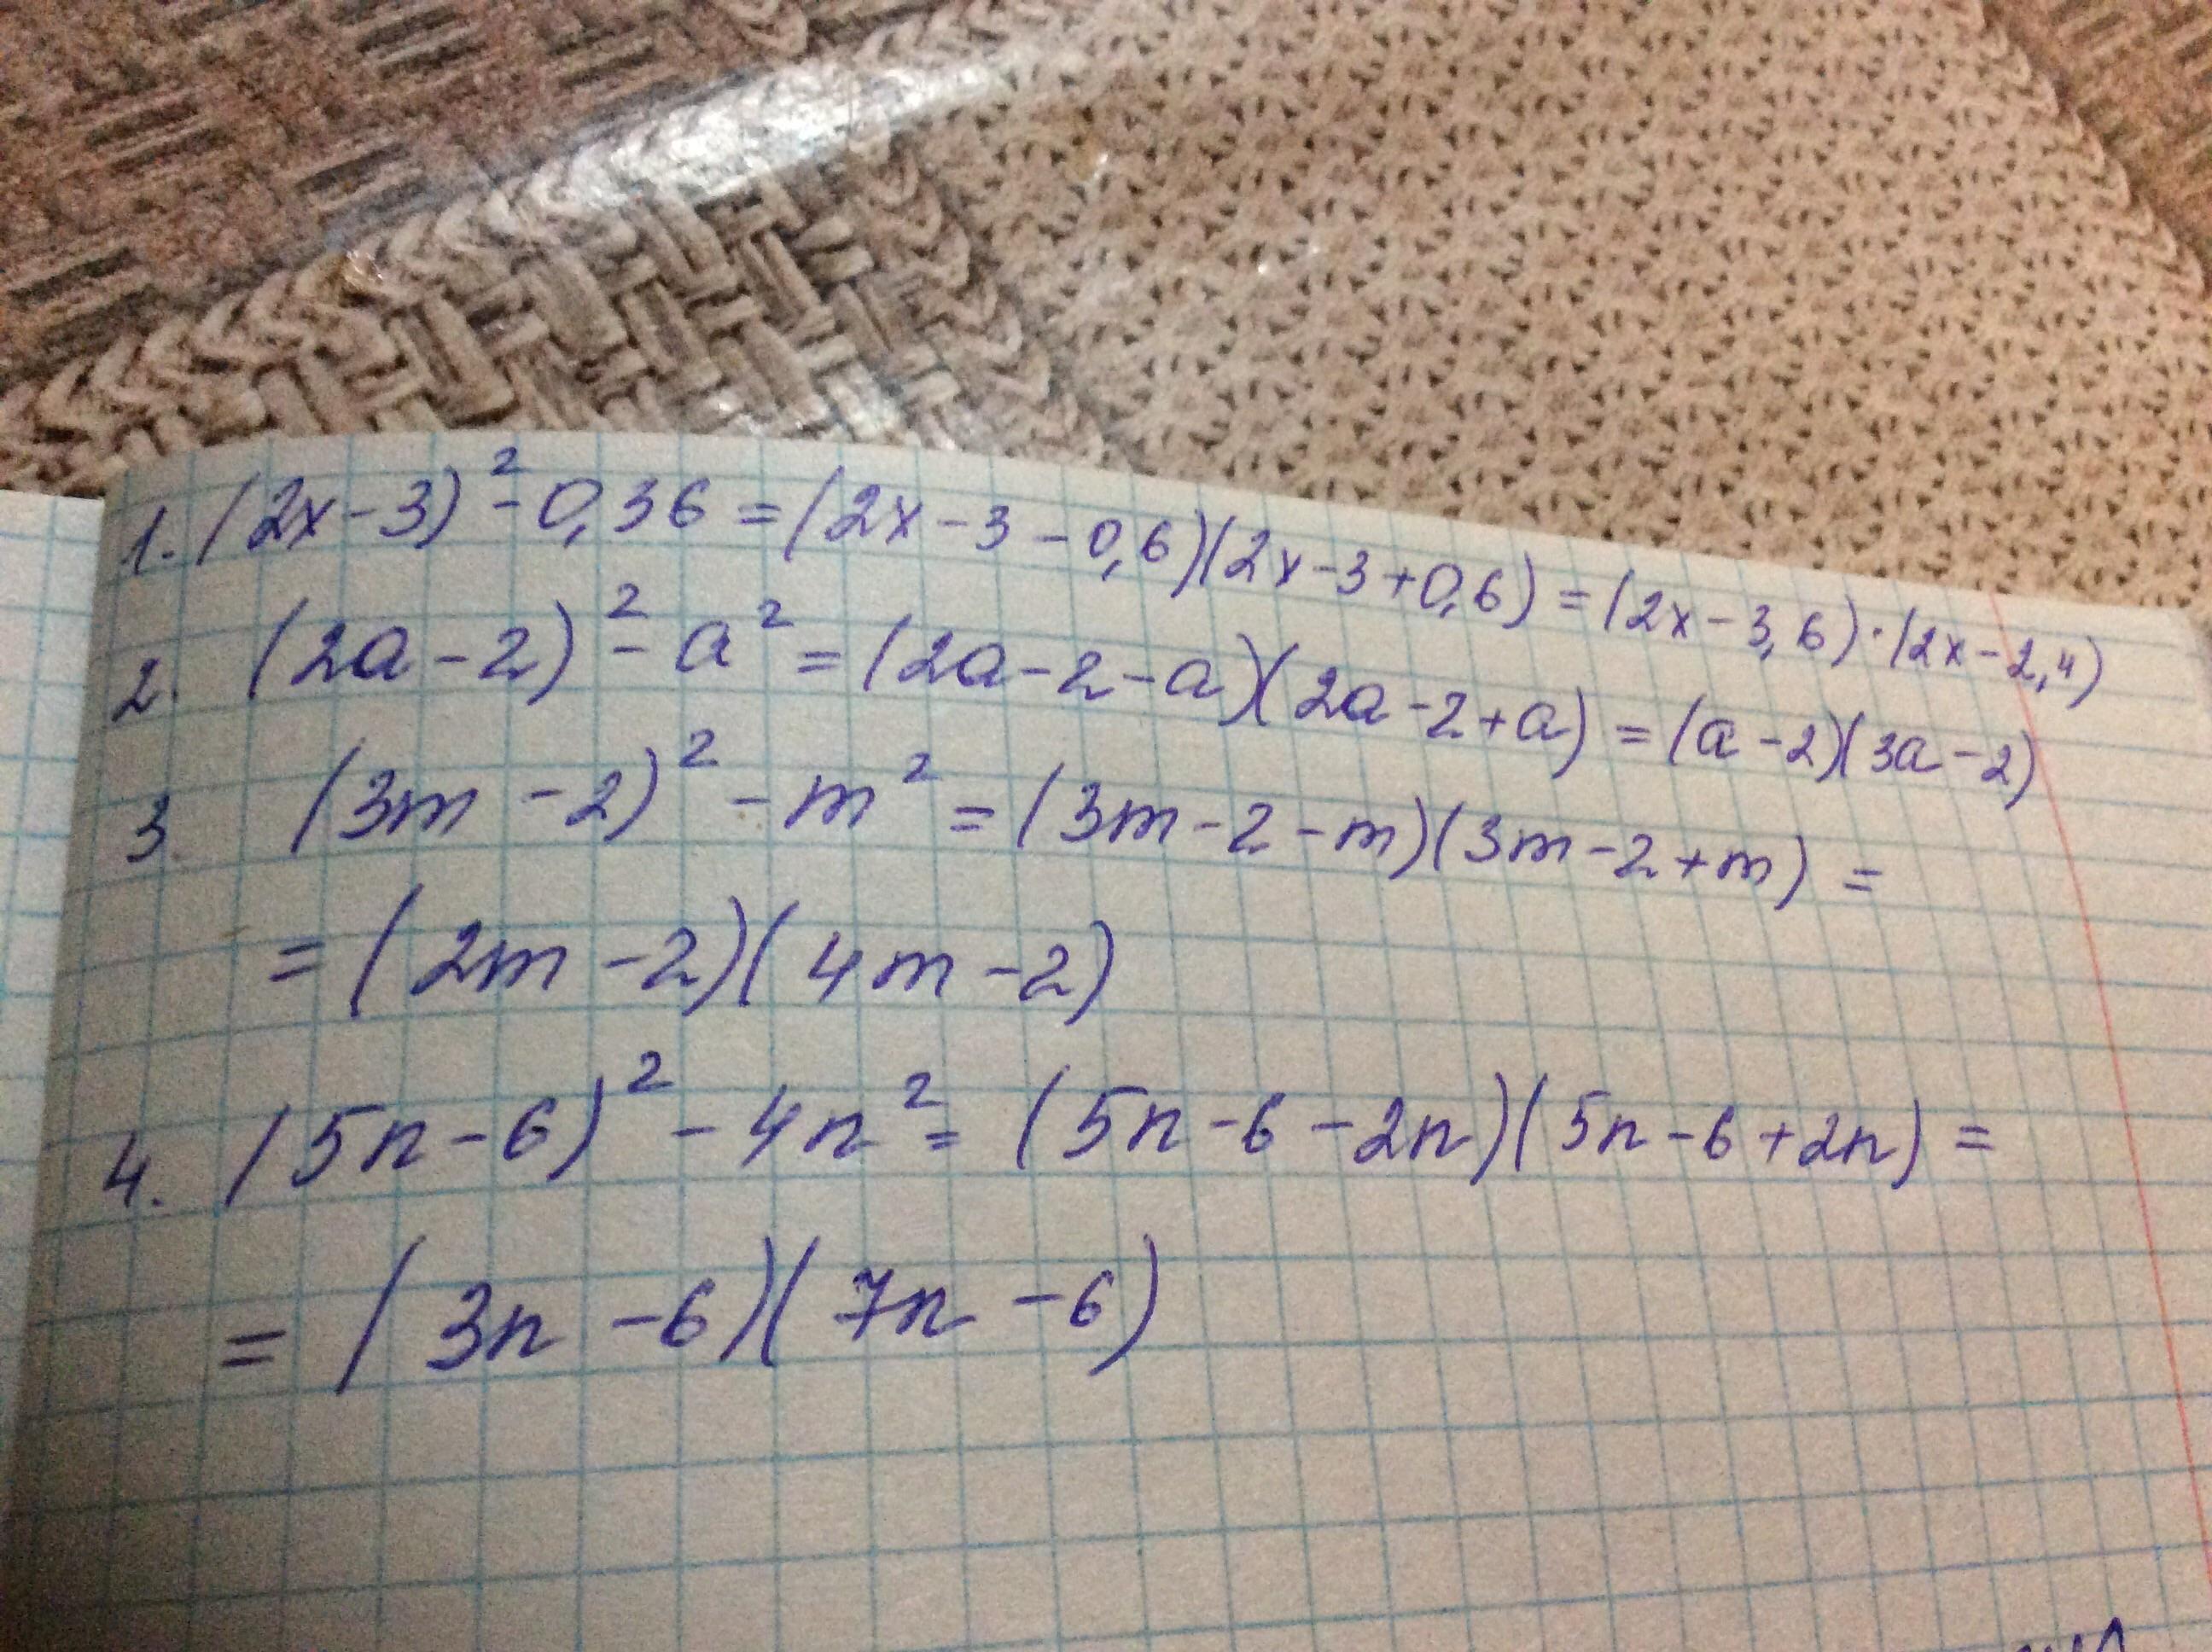 1. (2x-3)²-0,36=(2x-3-0,6)(2x-3+0,6)=(2x-3,6)·(2x-2,4)
2. (2a-2)²-a²=(2a-2-a)(2a-2+a)=(a-2)(3a-2)
3. (3m-2)²-m²=(3m-2-m)(3m-2+m)=
=(2m-2)(4m-2)
4. (5n-6)²-4n²=(5n-6-2n)(5n-6+2n)=
=(3n-6)(7n-6)